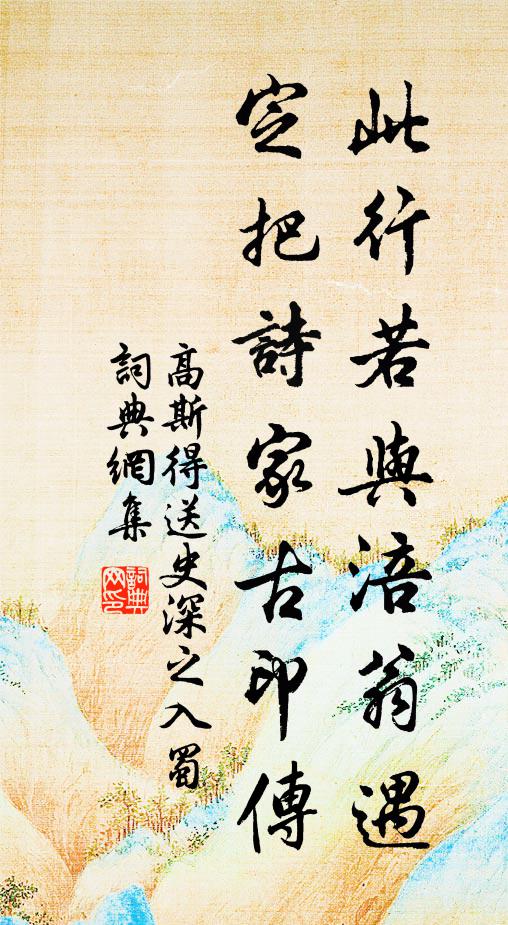 此行若與涪翁遇
定把詩家古印傳
高斯得送史深之入蜀
詞典網集
詞典網印